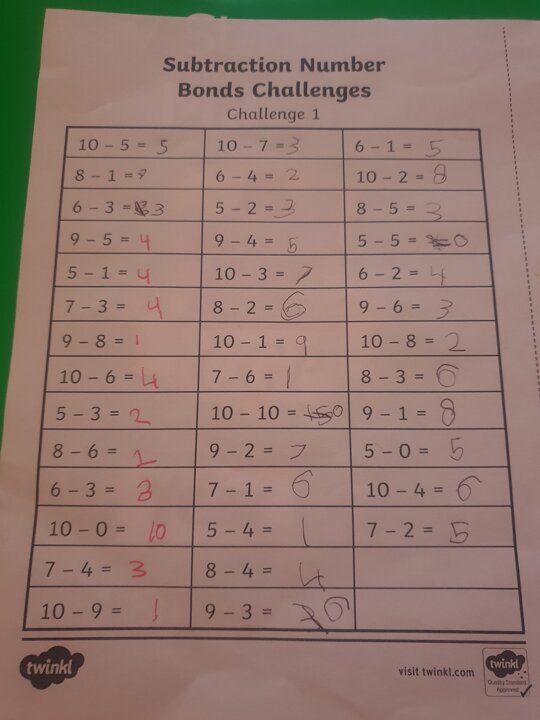 Subtraction Number
Bonds Challenges
Challenge 1
10 – 5 = 5 10 – 7 = 3 6 – 1 = 5
8 – 1 = 7 6 – 4 = 2 10 – 2 = 8
6 – 3 = 3 5 – 2 = 3 8 – 5 = 3
9 – 5 = 4 9 – 4 = 5 5 – 5 = 0
5 – 1 = 4 10 – 3 = 7 6 – 2 = 4
7 – 3 = 4 8 – 2 = 6 9 – 6 = 3
9 – 8 = 1 10 – 1 = 9 10 – 8 = 2
10 – 6 = 4 7 – 6 = 1 8 – 3 = 6
5 – 3 = 2 10 – 10 = 0 9 – 1 = 8
8 – 6 = 2 9 – 2 = 7 5 – 0 = 5
6 – 3 = 3 7 – 1 = 6 10 – 4 = 6
10 – 0 = 10 5 – 4 = 1 7 – 2 = 5
7 – 4 = 3 8 – 4 = 4
10 – 9 = 1 9 – 3 = 6
twinkl visit twinkl.com twinkl
Quality Standard
Approved